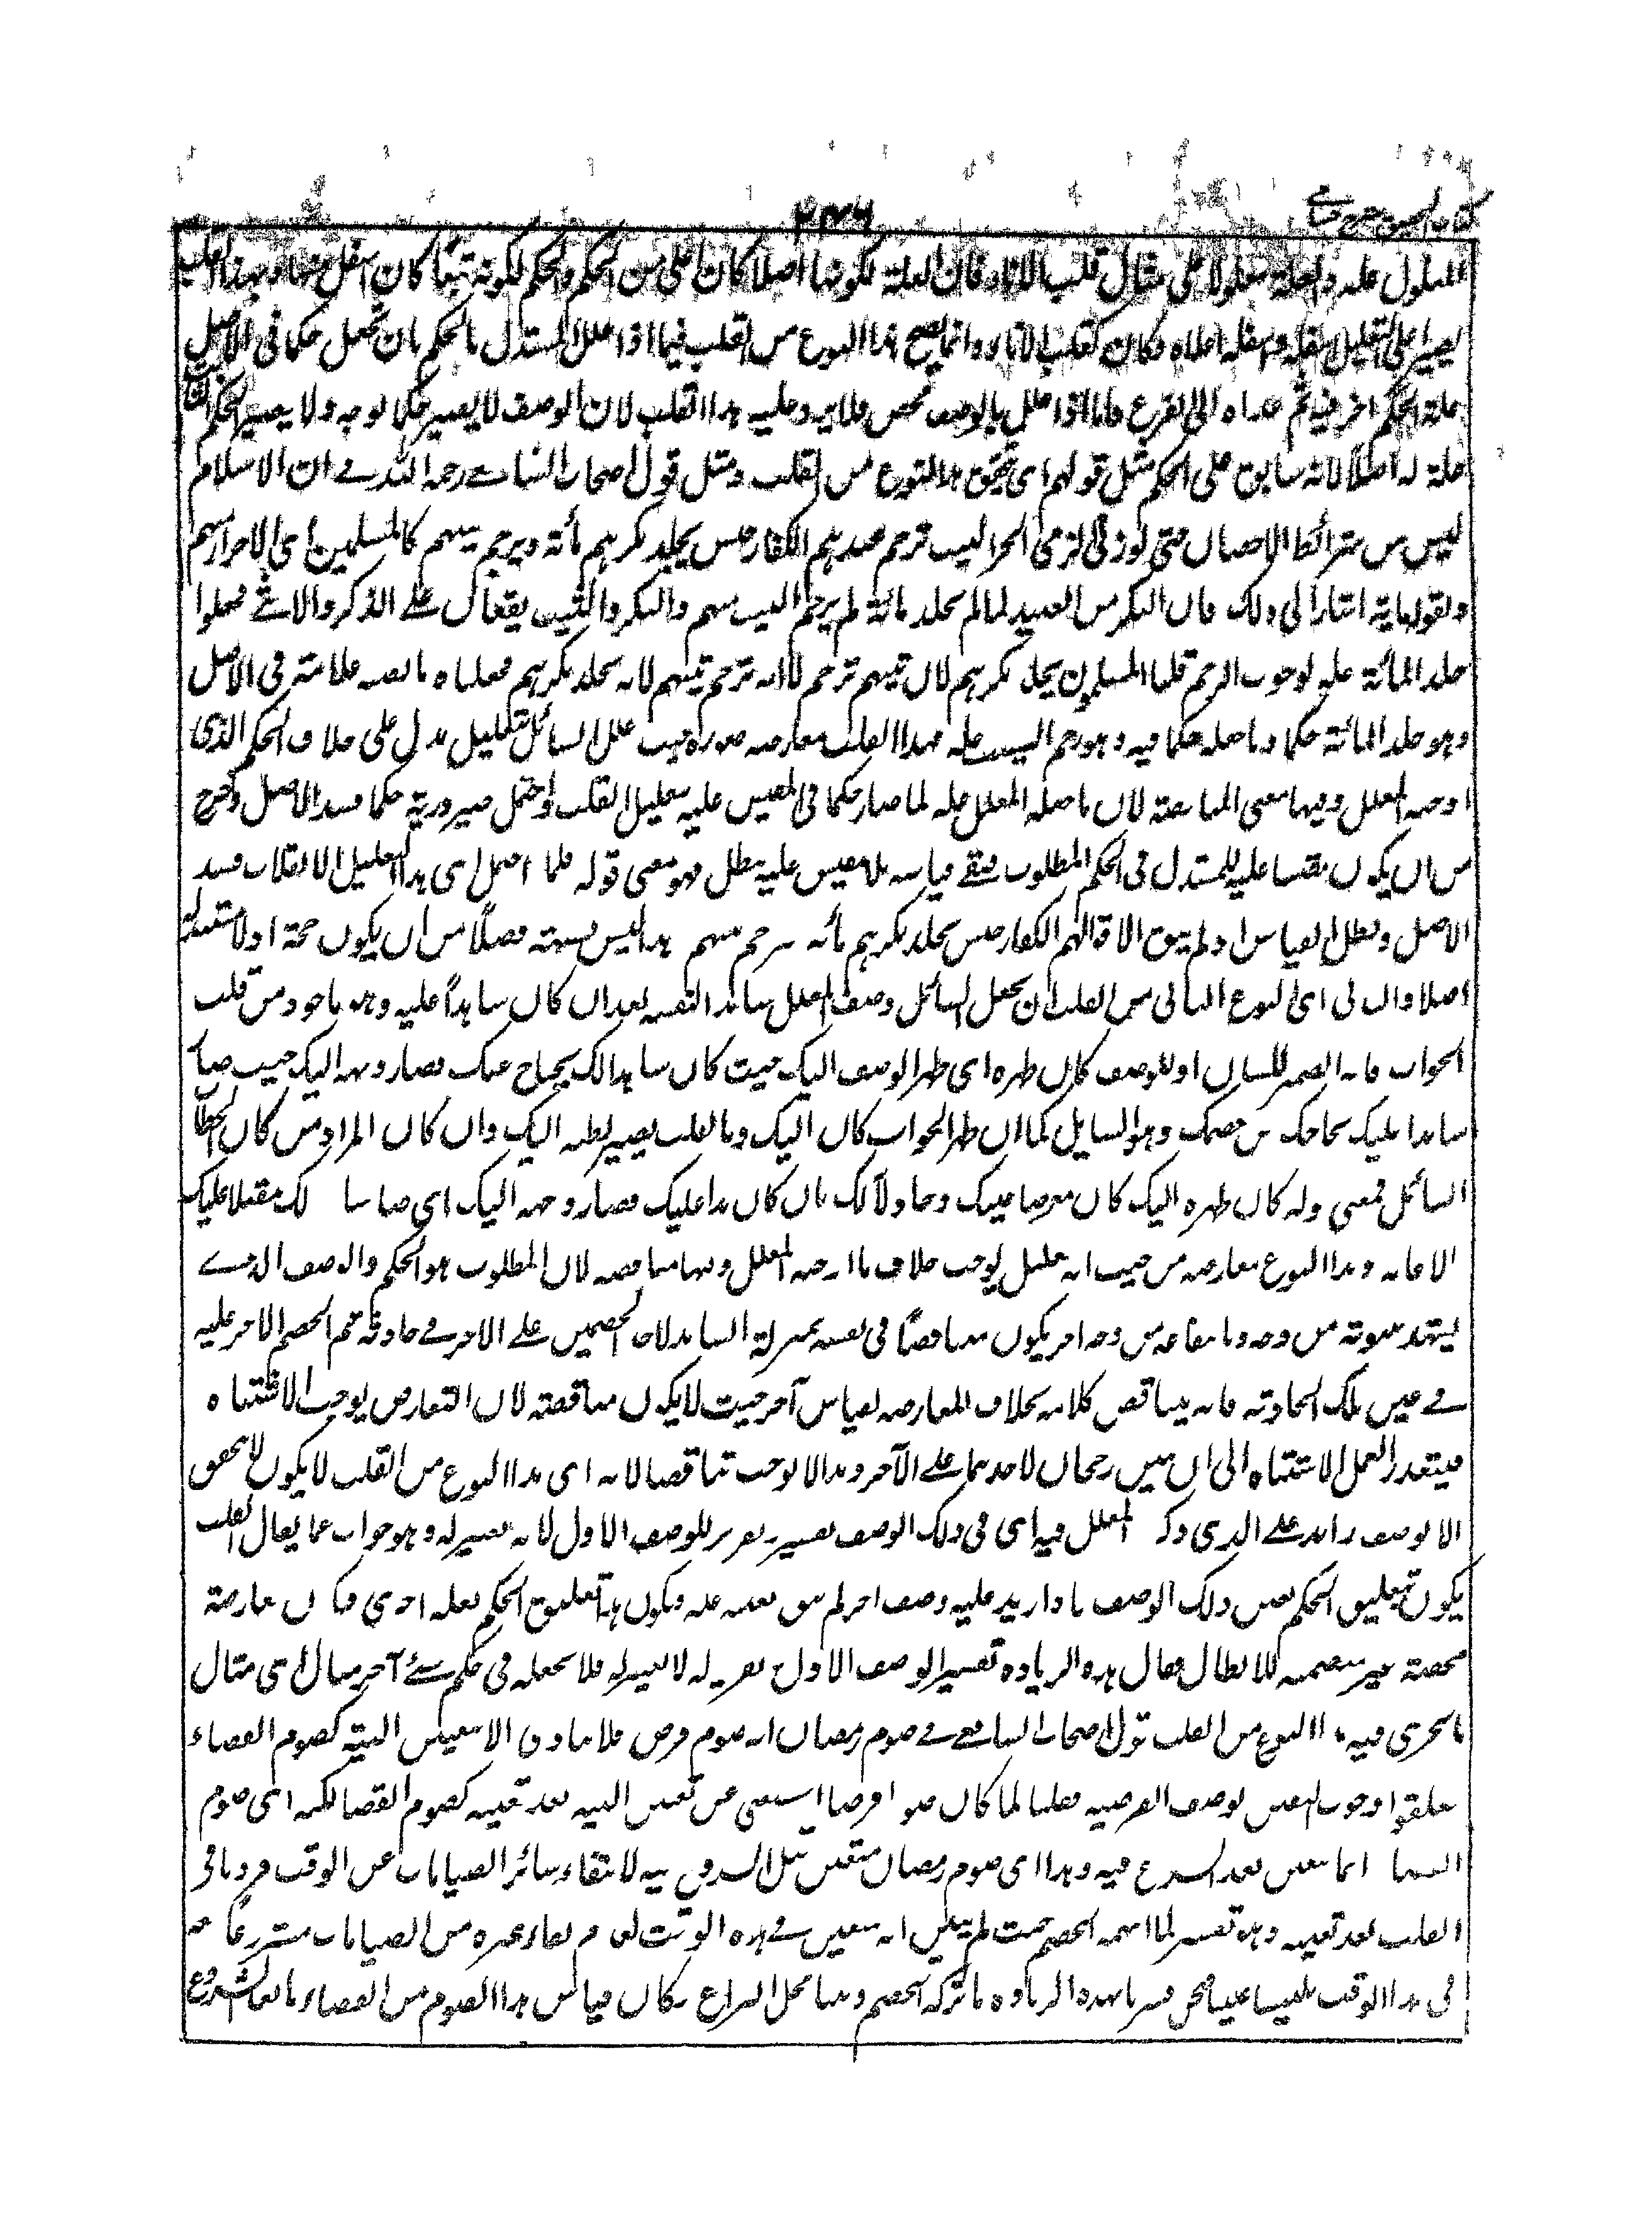 ٢٣٦
المعلول علة والعلة معلولا على مثال قلب الاناء فان العلة لكونها اصلا كان اعلى من الحكم والحكم لكونه تبعا كان اسفل منها وبهذا القلب
يصير على التعليل اسفله واسفله اعلاه فكان كقلب الاناء وانما يصح هذا النوع من القلب فيما اذا علل المستدل بالحكم بان تجعل حكما فى الاصل
علة لحكم اخر فيه ثم عداه الى الفرع فاما اذا علل بالوصف المحض فلا يرد عليه هذا القلب لان الوصف لا يصير حكما بوجه ولا يصير الحكم
علة له اصلا لانه سابق على الحكم مثل قولهم اى تحقق هذا النوع من القلب ومثل قول اصحاب الشافعے رحمه الله فے ان الاسلام
ليس من شرائط الاحصان حتى لو زنى الذمى الحر الثيب ترجم عندهم الكفار جنس يجلد بكرهم مأته ويرجم ثيبهم كالمسلمين اى الاحرار منهم
وبقوله مأته اشار الى ذلك فان البكر من العبيد لما لم يجلد مأتة لم يرجم الثيب منهم والبكر والثيب يقعان على الذكر والانثى فجعلوا
جلد المائة علة لوجوب الرجم قلنا المسلمون يجلد بكرهم لان ثيبهم ترجم لا انه ترجم ثيبهم لانه يجلد بكرهم فجعلناه ما نصبه علة شرعى فى الاصل
وهو جلد المائة حكما وما جعله حكما فيه وهو رجم الثيب علة فهذا القلب معارضه صورة حيث علل السائل بتعليل يدل على خلاف الحكم الذى
اوجبه المعلل وفيها معنى المناقضة لان ما جعله المعلل علة لما صار حكما فى المقيس عليه بتعليل القلب او احتمل صيرورته حكما فسد الاصل وخرج
من ان يكون مقيسا عليه للمستدل فى الحكم المطلوب فبقے قياسه بلا مقيس عليه فبطل فهو معنى قوله فلما احتمل اى هذا التعليل الانقلاب فسد
الاصل وبطل القياس اذ لم يبق الا قولهم الكفار جنس يجلد بكرهم مأته فيرجم ثيبهم وهذا ليس بشبهة فضلا من ان يكون حجة او لا شبهة له
اصلا والثانى اى النوع الثانى من القلب ان يجعل السائل وصف المعلل شاهدا لنفسه بعد ان كان شاهدا عليه وهو ماخوذ من قلب
الجراب فانه الضمير للشان او للوصف كان ظهره اى ظهر الوصف اليك حيث كان شاهدا لك يحتاج عنك فصار وجهه اليك حيث صار
شاهدا عليك يحاجك من خصمك وهو السايل كما ان ظهر الجراب كان اليك وبالقلب يصير بطنه اليك وان كان المراد من كان الخطاب
السائل فمعنى قوله كان ظهره اليك كان معرضا عنك وخاذلا لك بان كان شاهدا عليك فصار وجهه اليك اى صار شاهدا لك مقبلا عليك
الاعانه وهذا النوع معارضه من حيث انه تعليل يوجب خلاف ما اوجبه المعلل وفيها مناقضه لان المطلوب هو الحكم والوصف الذے
يشهد بثبوته من وجه وبانتفائه من وجه اخر يكون مناقضا فى نفسه بمنزلة الشاهد لاحد الخصمين على الاخر فے حادثة ثم للخصم الاخر عليه
فے عين تلك الحادثه فانه يناقض كلامه بخلاف المعارضه بقياس آخر حيث لا يكون مناقضة لان التعارض يوجب الاشتباه
فيتعذر العمل للاشتباه الى ان يتبين رجحان لاحدهما على الآخر وهذا لا يوجب تناقضا لانه اى هذا النوع من القلب لا يكون لا يتحقق
الا بوصف زائد على الذى ذكره المعلل فيه اى فى ذلك الوصف تفسير تقرير للوصف الاول لانه تفسير له وهو جواب عما يقال القلب
يكون بتعليق الحكم بعين ذلك الوصف فاذا زيد عليه وصف اخر لم يبق بعينه علة ويكون هذا تعليق الحكم بعلة اخرى فيكون معارضة
محضة غير متضمنه للابطال فقال هذه الزيادة تفسير الوصف الاول تقرير له لا تغيير له فلا تجعله فى حكم شئ آخر مثال اى مثال
ما يجرى فيه هذا النوع من القلب قول اصحاب الشافعے فے صوم رمضان انه صوم فرض فلا يتادى الا بتعيين النية كصوم القضاء
علقوا وجوب التعين بوصف الفرضيه فقلنا لما كان صوما فرضا استغنى عن تعين النيه بعد تعينه كصوم القضا لكنه اى صوم
القضاء انما يتعين بعد الشروع فيه وهذا اى صوم رمضان متعين قبل الشروع فيه لانتفاء سائر الصيامات عن الوقت فزدنا فى
القلب بعد تعينه وهو تفسير لما ابهمه الخصم حيث لم يبين انه متعين فے هذه الوقت لعدم بقاء غيره من الصيامات مشروعا معه
فى هذا الوقت تلبيسا علينا فنحن فسرنا بهذه الزيادة ما تركه الخصم وبينا محل النزاع فكان قياس هذا الصوم من القضاء ما بعد الشروع